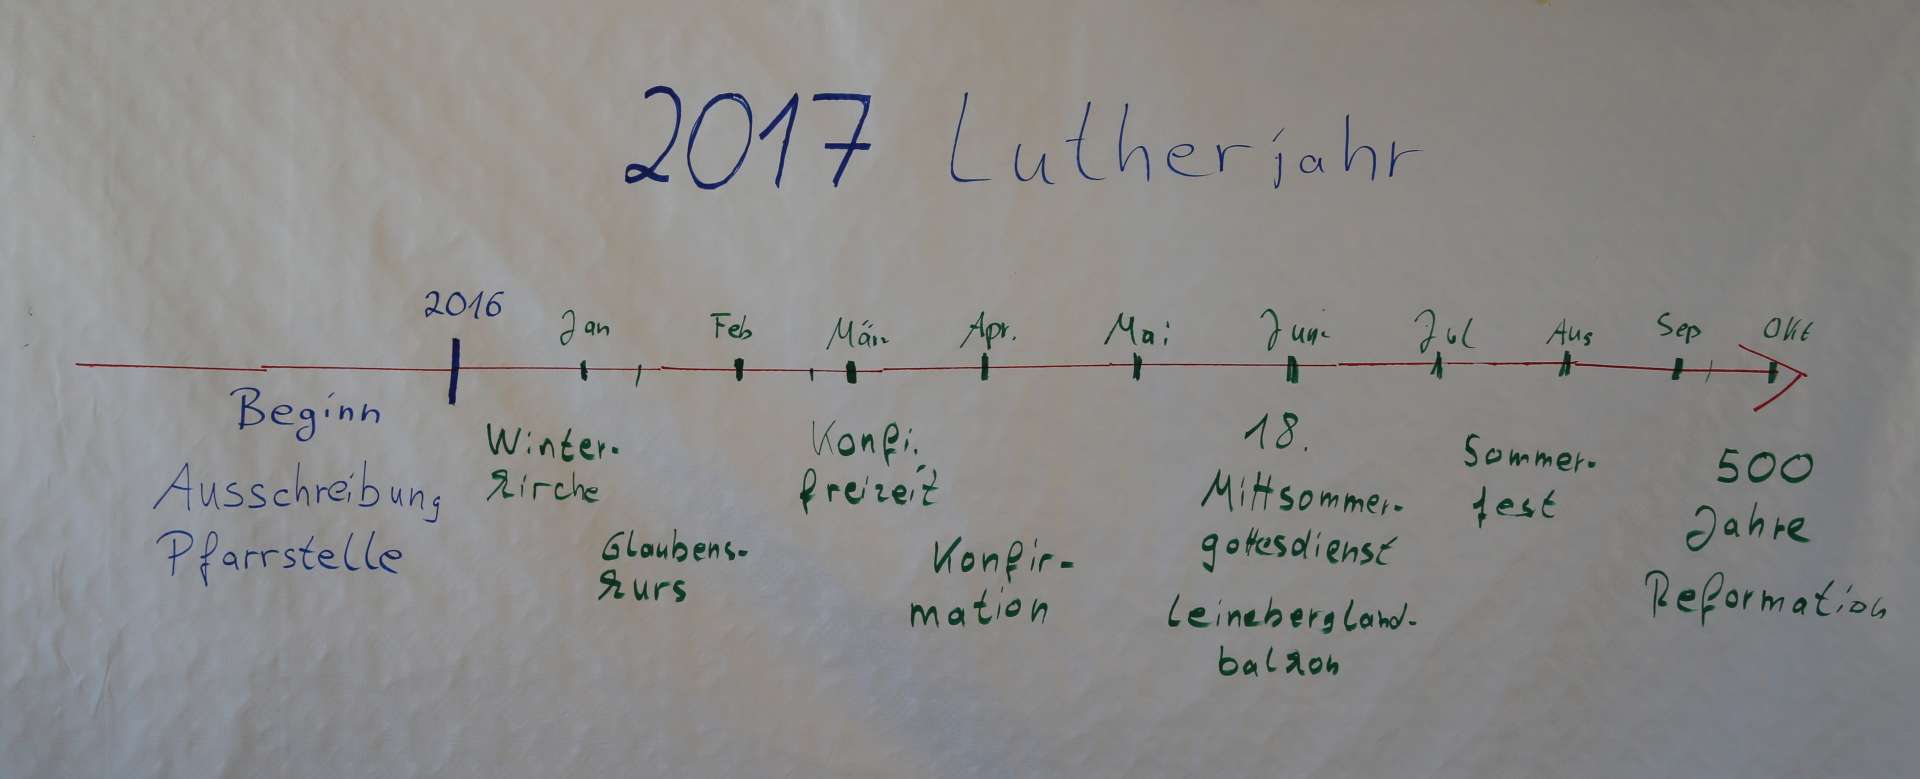 2017 Lutherjahr
2016
Jan Feb Mär Apr. Mai Juni Jul Aug Sep Okt
Beginn
Ausschreibung
Pfarrstelle
Winter-
kirche
Glaubens-
kurs
Konfi.
freizeit
Konfir-
mation
18.
Mittsommer-
gottesdienst
Leinebergland-
balkon
Sommer-
fest
500
Jahre
Reformation